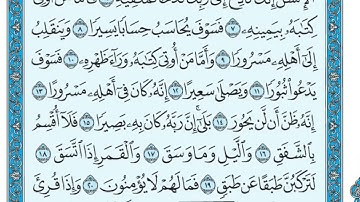 كِتَٰبَهُۥ بِيَمِينِهِۦ ٧ فَسَوْفَ يُحَاسَبُ حِسَابًا يَسِيرًا ٨ وَيَنقَلِبُ
إِلَىٰٓ أَهْلِهِۦ مَسْرُورًا ٩ وَأَمَّا مَنْ أُوتِيَ كِتَٰبَهُۥ وَرَآءَ ظَهْرِهِۦ ١٠ فَسَوْفَ
يَدْعُوا۟ ثُبُورًا ١١ وَيَصْلَىٰ سَعِيرًا ١٢ إِنَّهُۥ كَانَ فِيٓ أَهْلِهِۦ مَسْرُورًا ١٣
إِنَّهُۥ ظَنَّ أَن لَّن يَحُورَ ١٤ بَلَىٰٓ إِنَّ رَبَّهُۥ كَانَ بِهِۦ بَصِيرًا ١٥ فَلَآ أُقْسِمُ
بِٱلشَّفَقِ ١٦ وَٱلَّيْلِ وَمَا وَسَقَ ١٧ وَٱلْقَمَرِ إِذَا ٱتَّسَقَ ١٨
لَتَرْكَبُنَّ طَبَقًا عَن طَبَقٍ ١٩ فَمَا لَهُمْ لَا يُؤْمِنُونَ ٢٠ وَإِذَا قُرِئَ